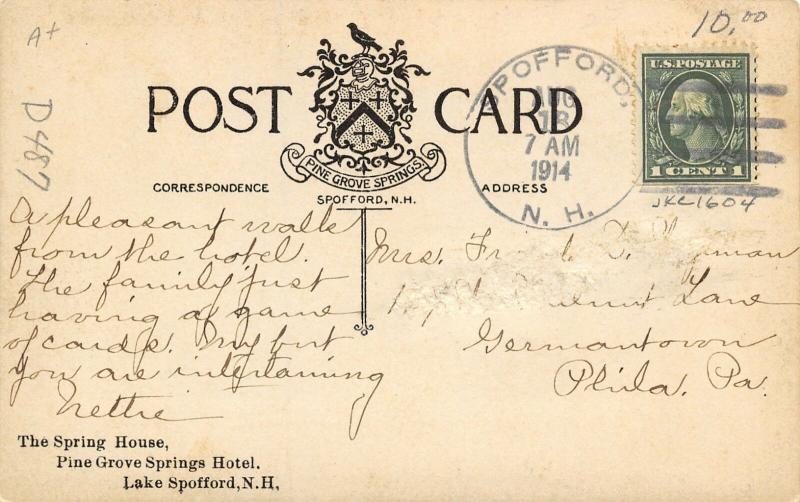 A+
10.00
D487
POST CARD
PINE GROVE SPRINGS
SPOFFORD, N.H.
CORRESPONDENCE
ADDRESS
SPOFFORD,
AUG
7 AM
1914
N. H.
U.S. POSTAGE
1 CENT 1
JKC1604
A pleasant walk
from the hotel.
The family just
having a game
of cards. My but
you are intertaining
Nettie
Mrs.
Lane
Germantown
Phila. Pa.
The Spring House,
Pine Grove Springs Hotel.
Lake Spofford, N.H.